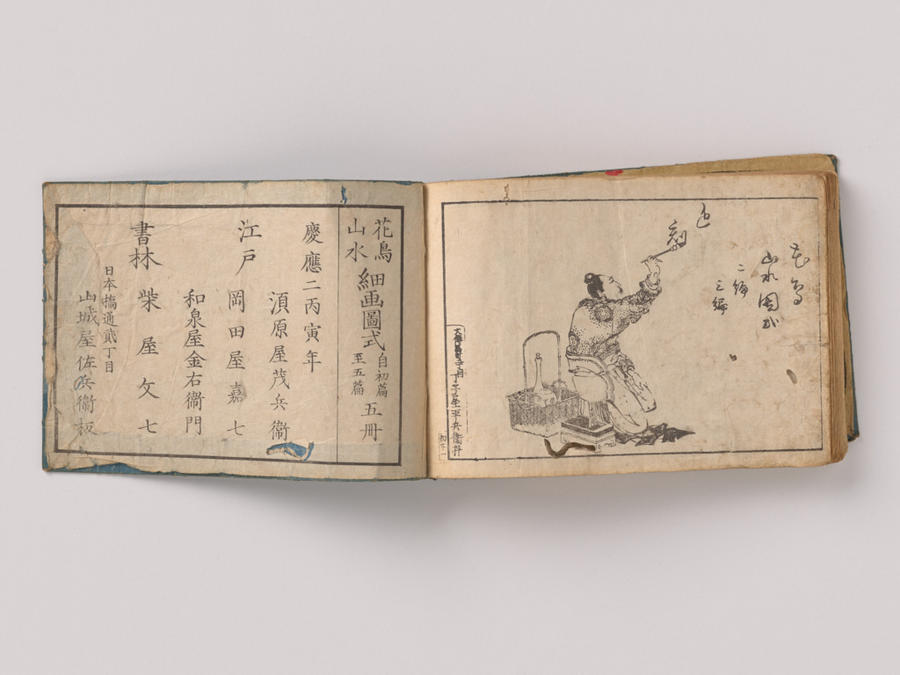 花鳥
山水
細画圖式
自初篇
至五篇
五冊
慶應二丙寅年
須原屋茂兵衞
江戸
岡田屋嘉七
和泉屋金右衞門
書林
柴屋文七
日本橋通貳丁目
山城屋佐兵衞板
花鳥
山水圖式
二編
三編